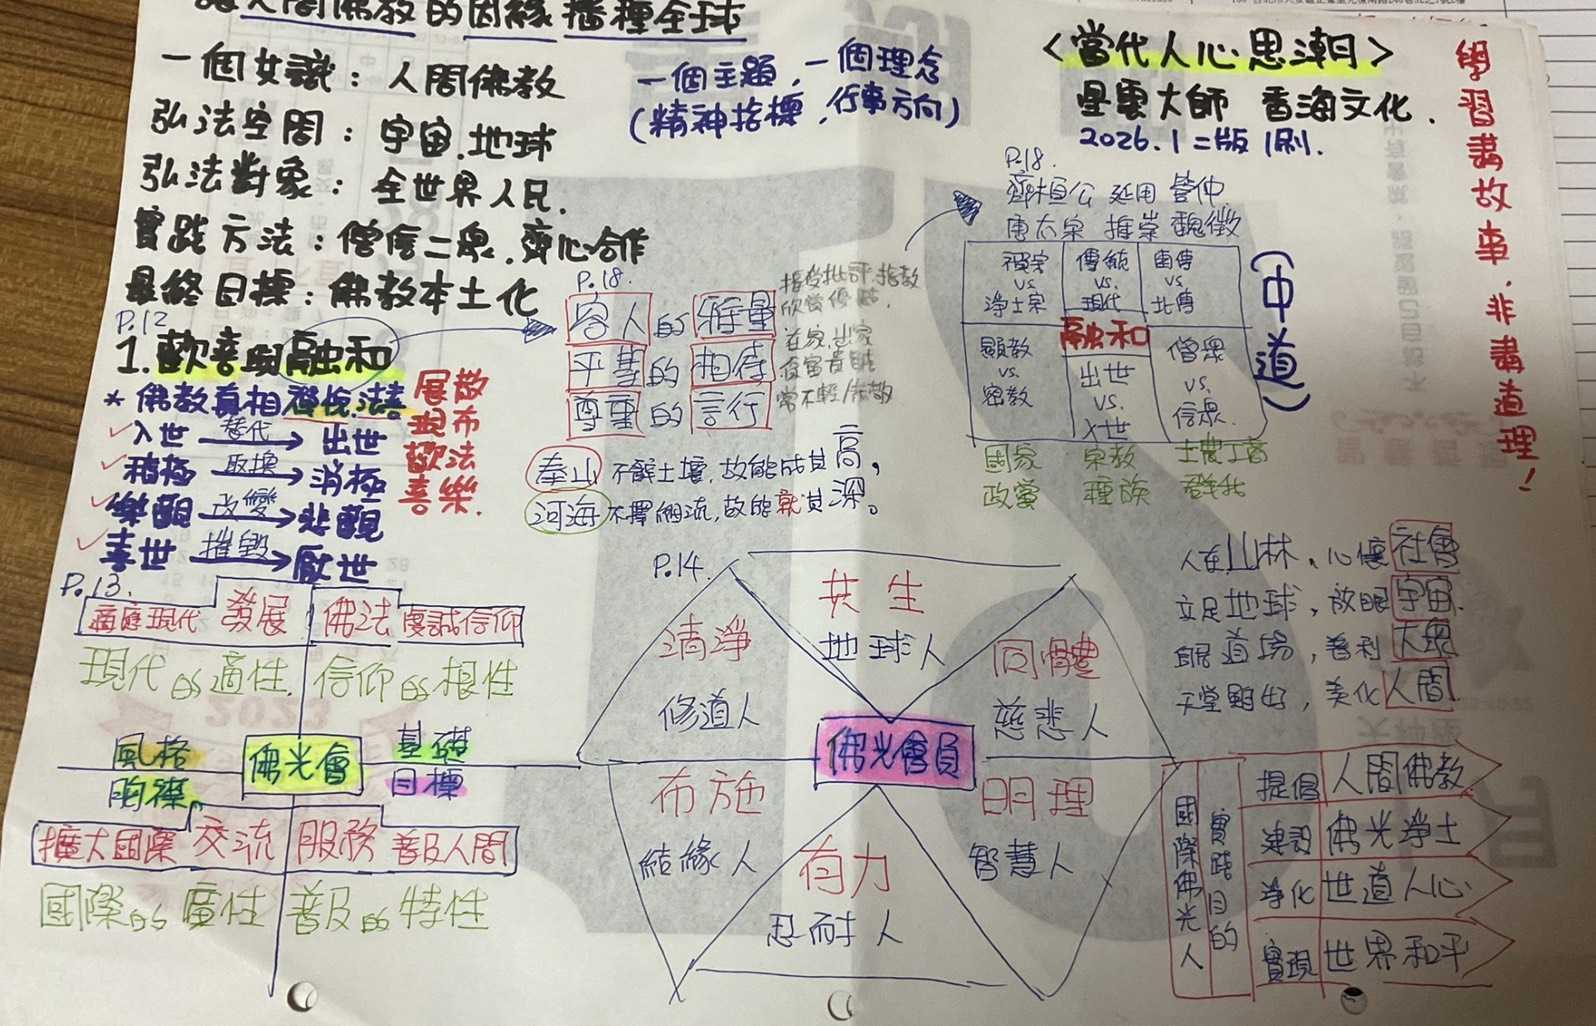 人間佛教的因緣播種全球
一個共識：人間佛教
弘法空間：宇宙.地球
弘法對象：全世界人民.
實踐方法：僧信二眾.齊心合作
最終目標：佛教本土化
一個主題，一個理念
(精神指標，行事方向)
<當代人心思潮>
星雲大師 香海文化.
2026.1二版1刷.
學習講故事，非講道理！
P.12
1.歡喜與融和
*佛教真相
展散
現布
歡法
喜樂.
入世 替代 出世
積極 取換 消極
樂觀 改變 悲觀
喜世 摧毀 厭世
P.18.
容人的雅量
平等的相待
尊重的言行
接受批評.指教
欣賞優點.
在家.出家
貧富貴賤
常不輕
泰山不辭土壤，故能成其高，
河海不擇細流，故能就其深。
P.18.
齊桓公 延用 管仲
唐太宗 推崇 魏徵
禪宗 vs. 淨土宗
傳統 vs. 現代
南傳 vs. 北傳
融和
顯教 vs. 密教
出世 vs. 入世
僧眾 vs. 信眾.
(中道)
國家 宗教 士農工商
政黨 種族
P.13.
適應現代 發展 佛法 虔誠信仰
現代的適性. 信仰的根性
風格 佛光會 基礎
胸襟. 目標
擴大國際 交流 服務 普及人間
國際的廣性 普及的特性
P.14.
共生
地球人
清淨
修道人
同體
慈悲人
佛光會員
布施
結緣人
明理
智慧人
有力
忍耐人
人在山林，心懷社會
立足地球，放眼宇宙.
身居道場，普利大眾
天堂雖好，美化人間.
國際佛光人
實踐目的
提倡 人間佛教
建設 佛光淨土
淨化 世道人心
實現 世界和平